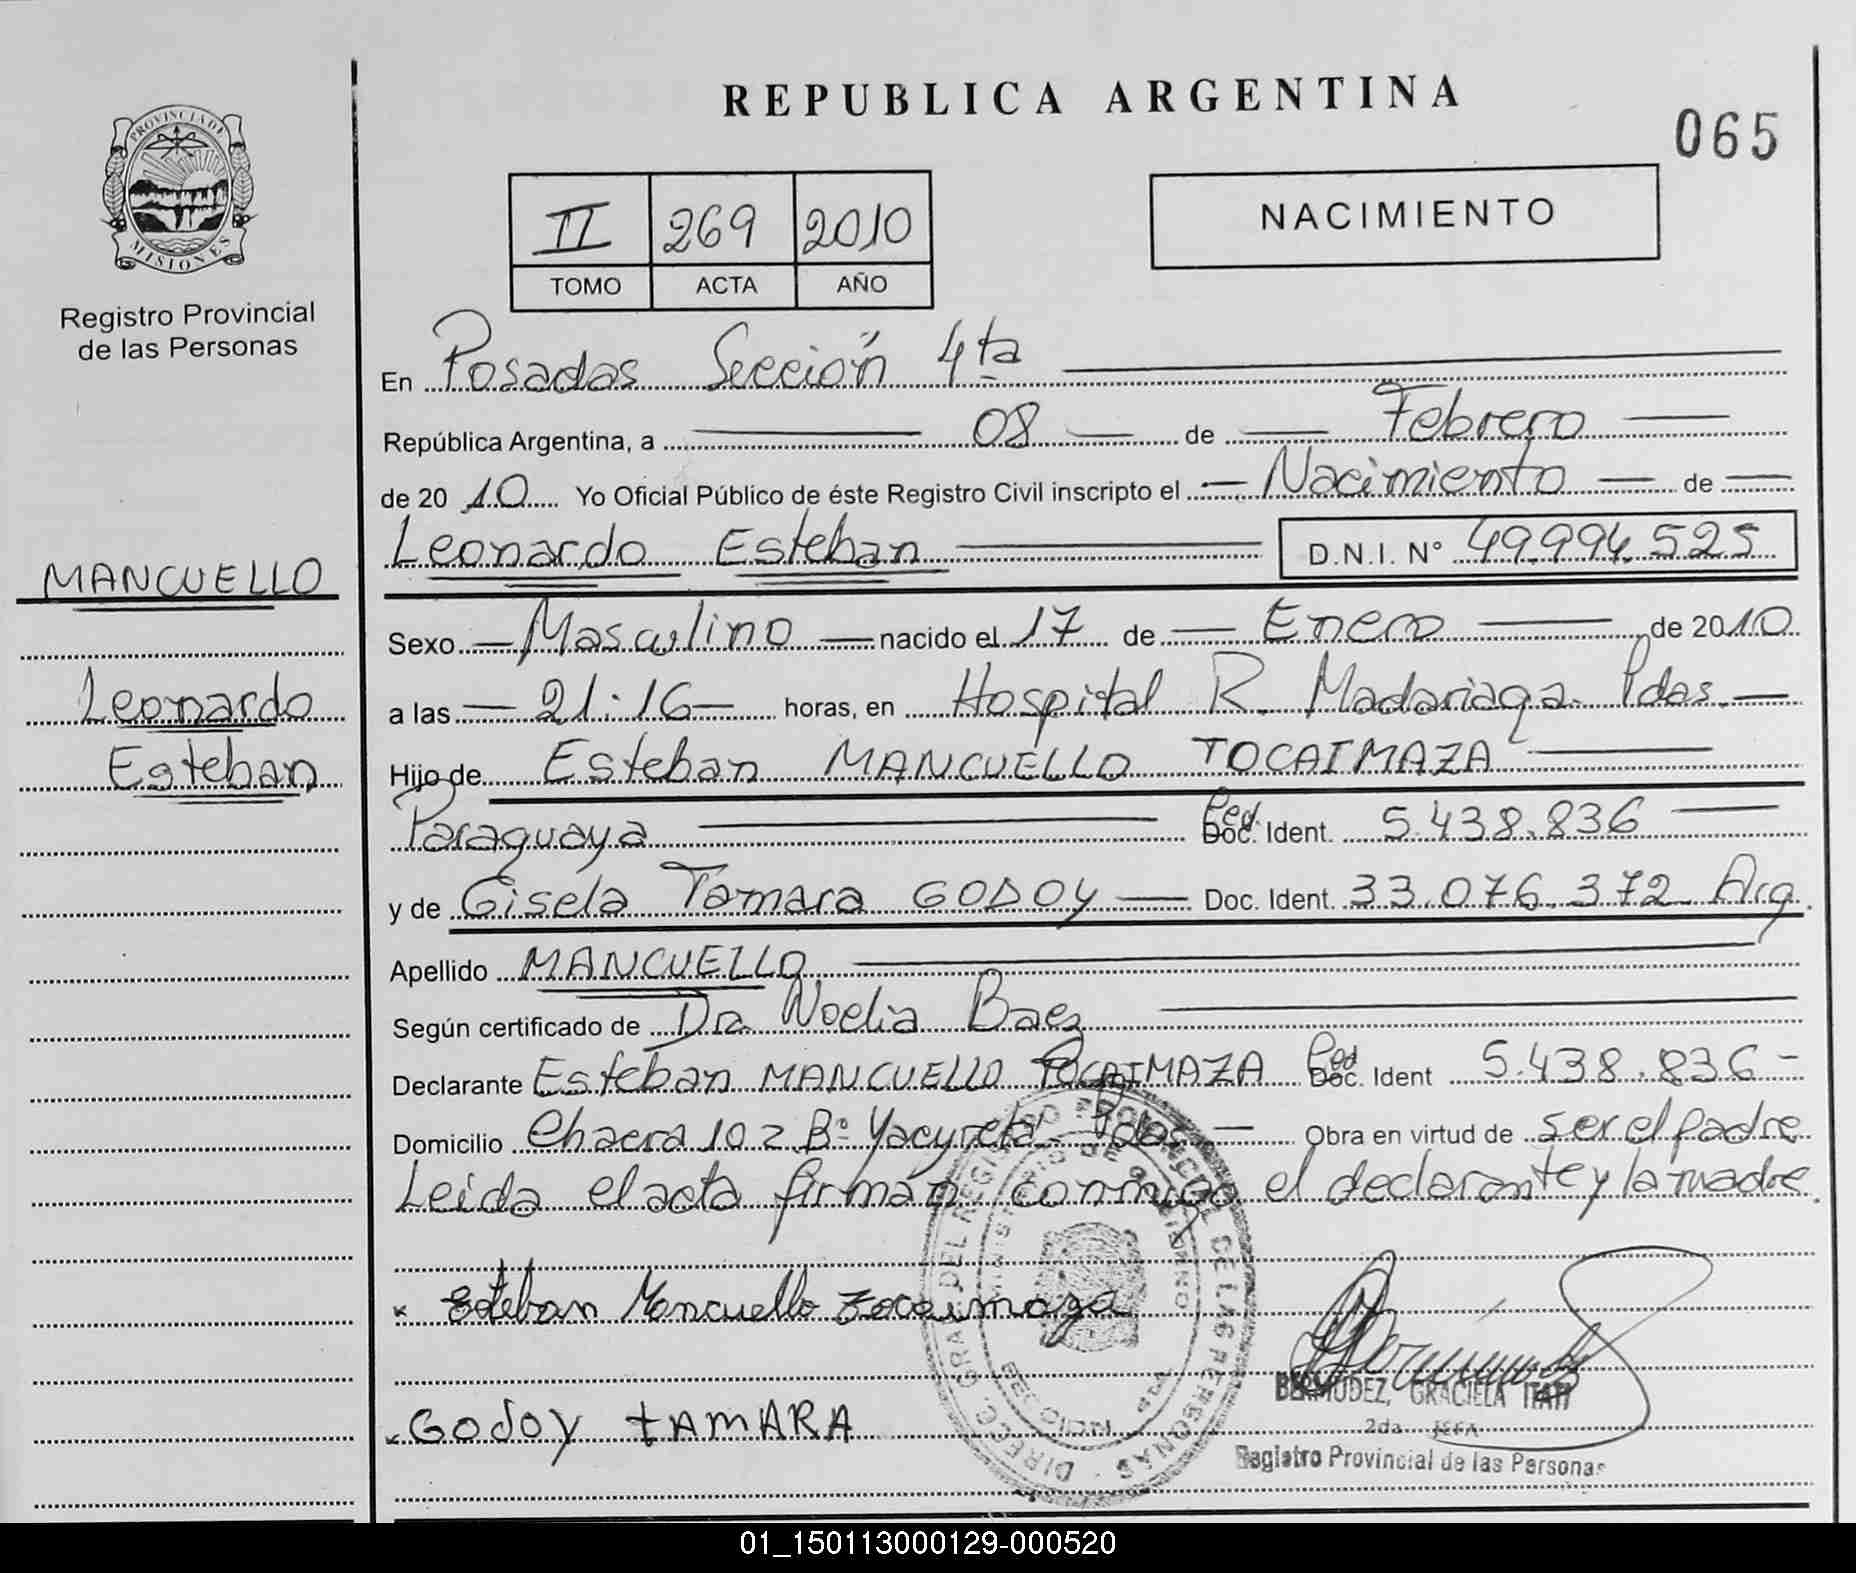 PROVINCIA DE
MISIONES
Registro Provincial
de las Personas
MANCUELLO
Leonardo
Esteban
REPUBLICA ARGENTINA
065
II 269 2010
TOMO ACTA AÑO
NACIMIENTO
En Posadas Sección 4ta
República Argentina, a 08 de Febrero
de 2010 Yo Oficial Público de éste Registro Civil inscripto el Nacimiento de
Leonardo Esteban D.N.I. N° 49.994.525
Sexo Masculino nacido el 17 de Enero de 2010
a las 21:16 horas, en Hospital R. Madariaga. Pdas.
Hijo de Esteban MANCUELLO TOCAIMAZA
Paraguaya Ced. Doc. Ident. 5.438.836
y de Gisela Tamara GODOY Doc. Ident. 33.076.372 Arg.
Apellido MANCUELLO
Según certificado de Dra. Noelia Baez
Declarante Esteban MANCUELLO TOCAIMAZA Ced Doc. Ident 5.438.836
Domicilio Chacra 102 B° Yacyreta Pdas Obra en virtud de ser el padre
Leida el acta firman conmigo el declarante y la madre.
x Esteban Mancuello Tocaimaza
GODOY TAMARA
BERMUDEZ, GRACIELA ITATI
2da JEFA
Registro Provincial de las Personas
01_150113000129-000520